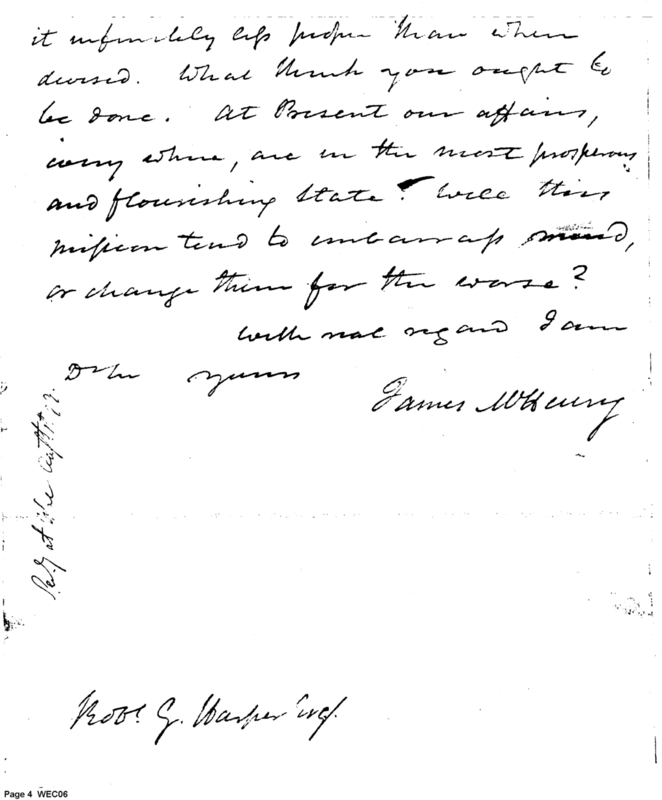 it infinitely less proper than when
devised. What think you ought to
be done. At Present our affairs,
every where, are in the most prosperous
and flourishing State. Will this
mission tend to embarrass
or change them for the worse?
With real regard I am
Dr Sir yours
James McHenry
at the
Robt. G. Harper Esq.
Page 4 WEC06